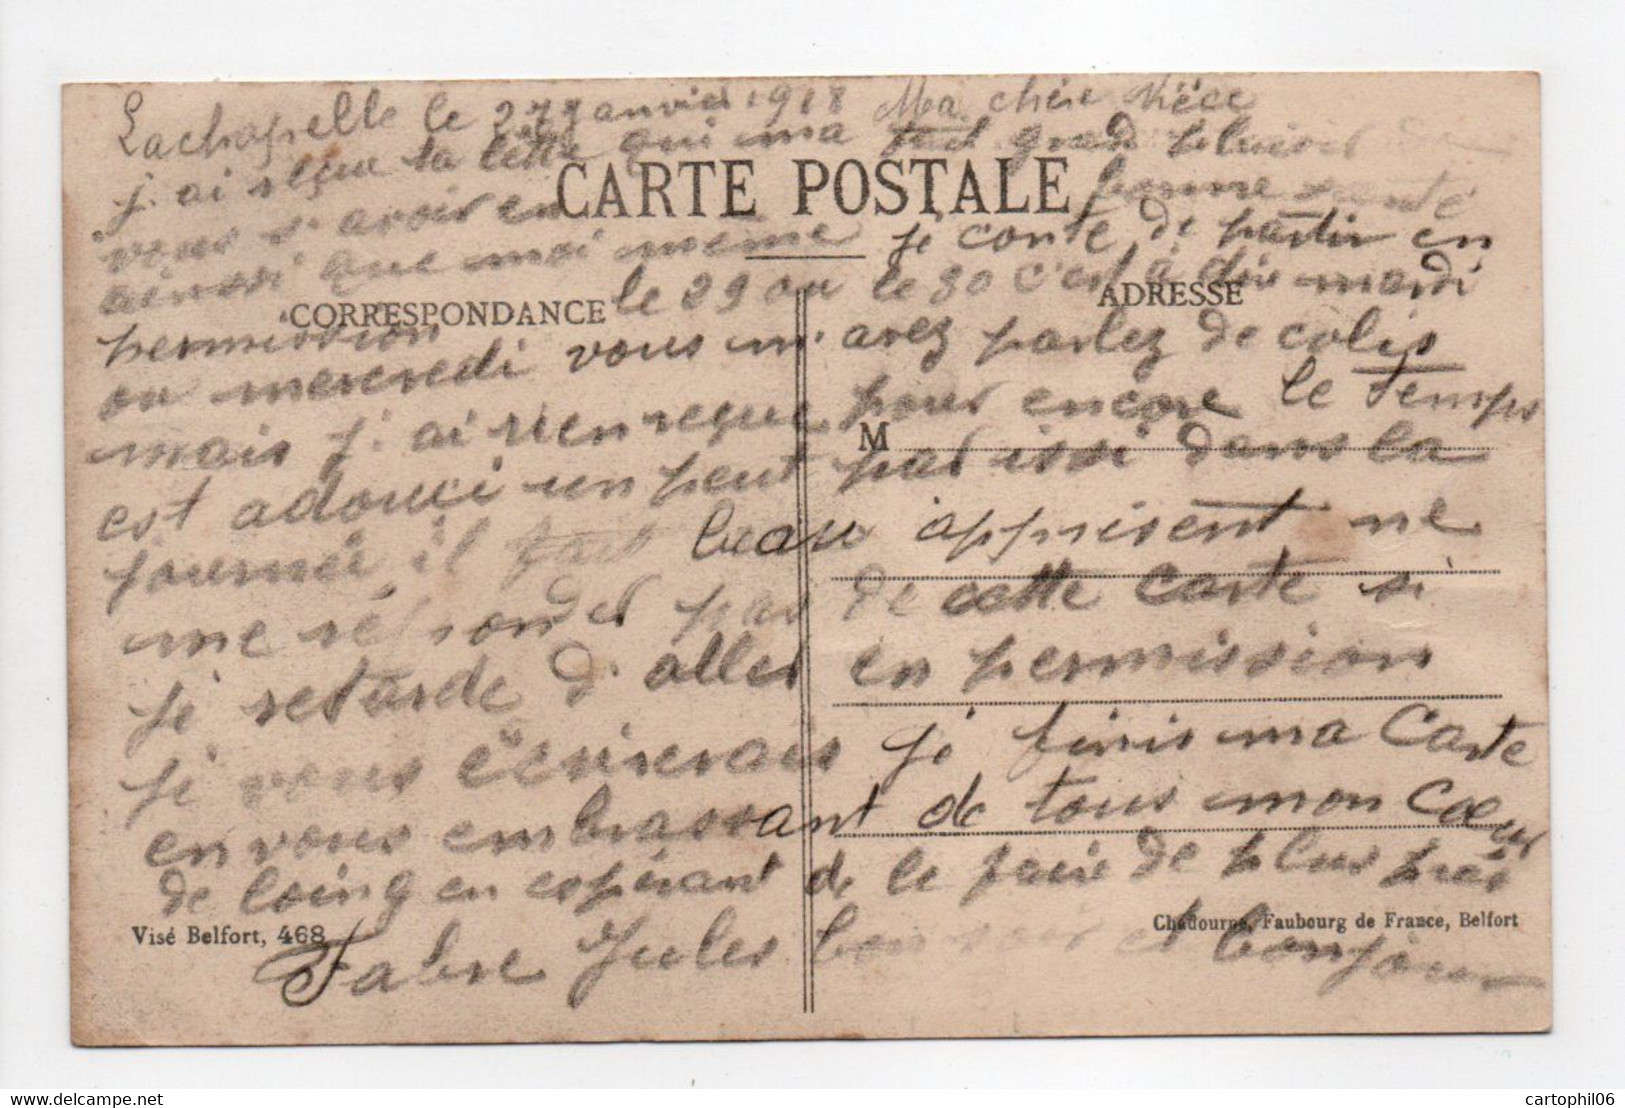 Lachapelle le 27 Janvier 1918 Ma chère Nièce
j'ai reçue ta lettre qui ma fait grand plaisir de
CARTE POSTALE
vous s'avoir en bonne santé
ainssi que moi meme je conte de partir en
permission le 29 ou le 30 c'est à dire mardi
CORRESPONDANCE
ADRESSE
ou mercredi vous m'avez parlez de colis
mais j'ai rien reçue pour encore le temps
M
est adouci un peut par issi dans la
journée il fait beau apprésent ne
me réponder pas de cette carte si
je retarde d'aller en permission
je vous écrirerais je finis ma carte
en vous embrassant de tous mon cœur
de loing en espérant de le faire de plus près
Visé Belfort, 468
Chadourne, Faubourg de France, Belfort
Fabre Jules bonsoir et bonjour
delcampe.net
cartophil06